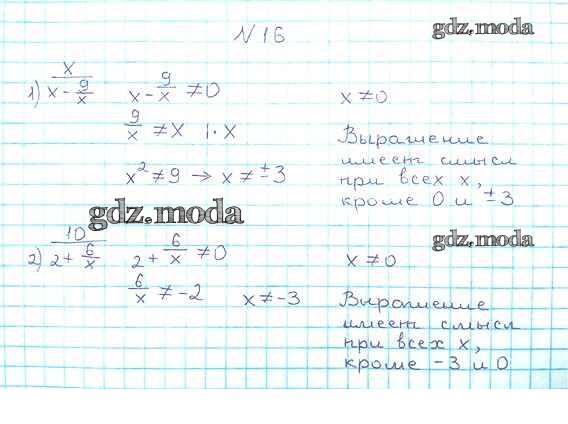 N16
gdz.moda
1) x / (x - 9/x)    x - 9/x ≠ 0    x ≠ 0
9/x ≠ x  | · x    Выражение
имеет смысл
x² ≠ 9 → x ≠ ±3    при всех x,
кроме 0 и ±3
gdz.moda
gdz.moda
2) 10 / (2 + 6/x)    2 + 6/x ≠ 0    x ≠ 0
6/x ≠ -2    x ≠ -3    Выражение
имеет смысл
при всех x,
кроме -3 и 0